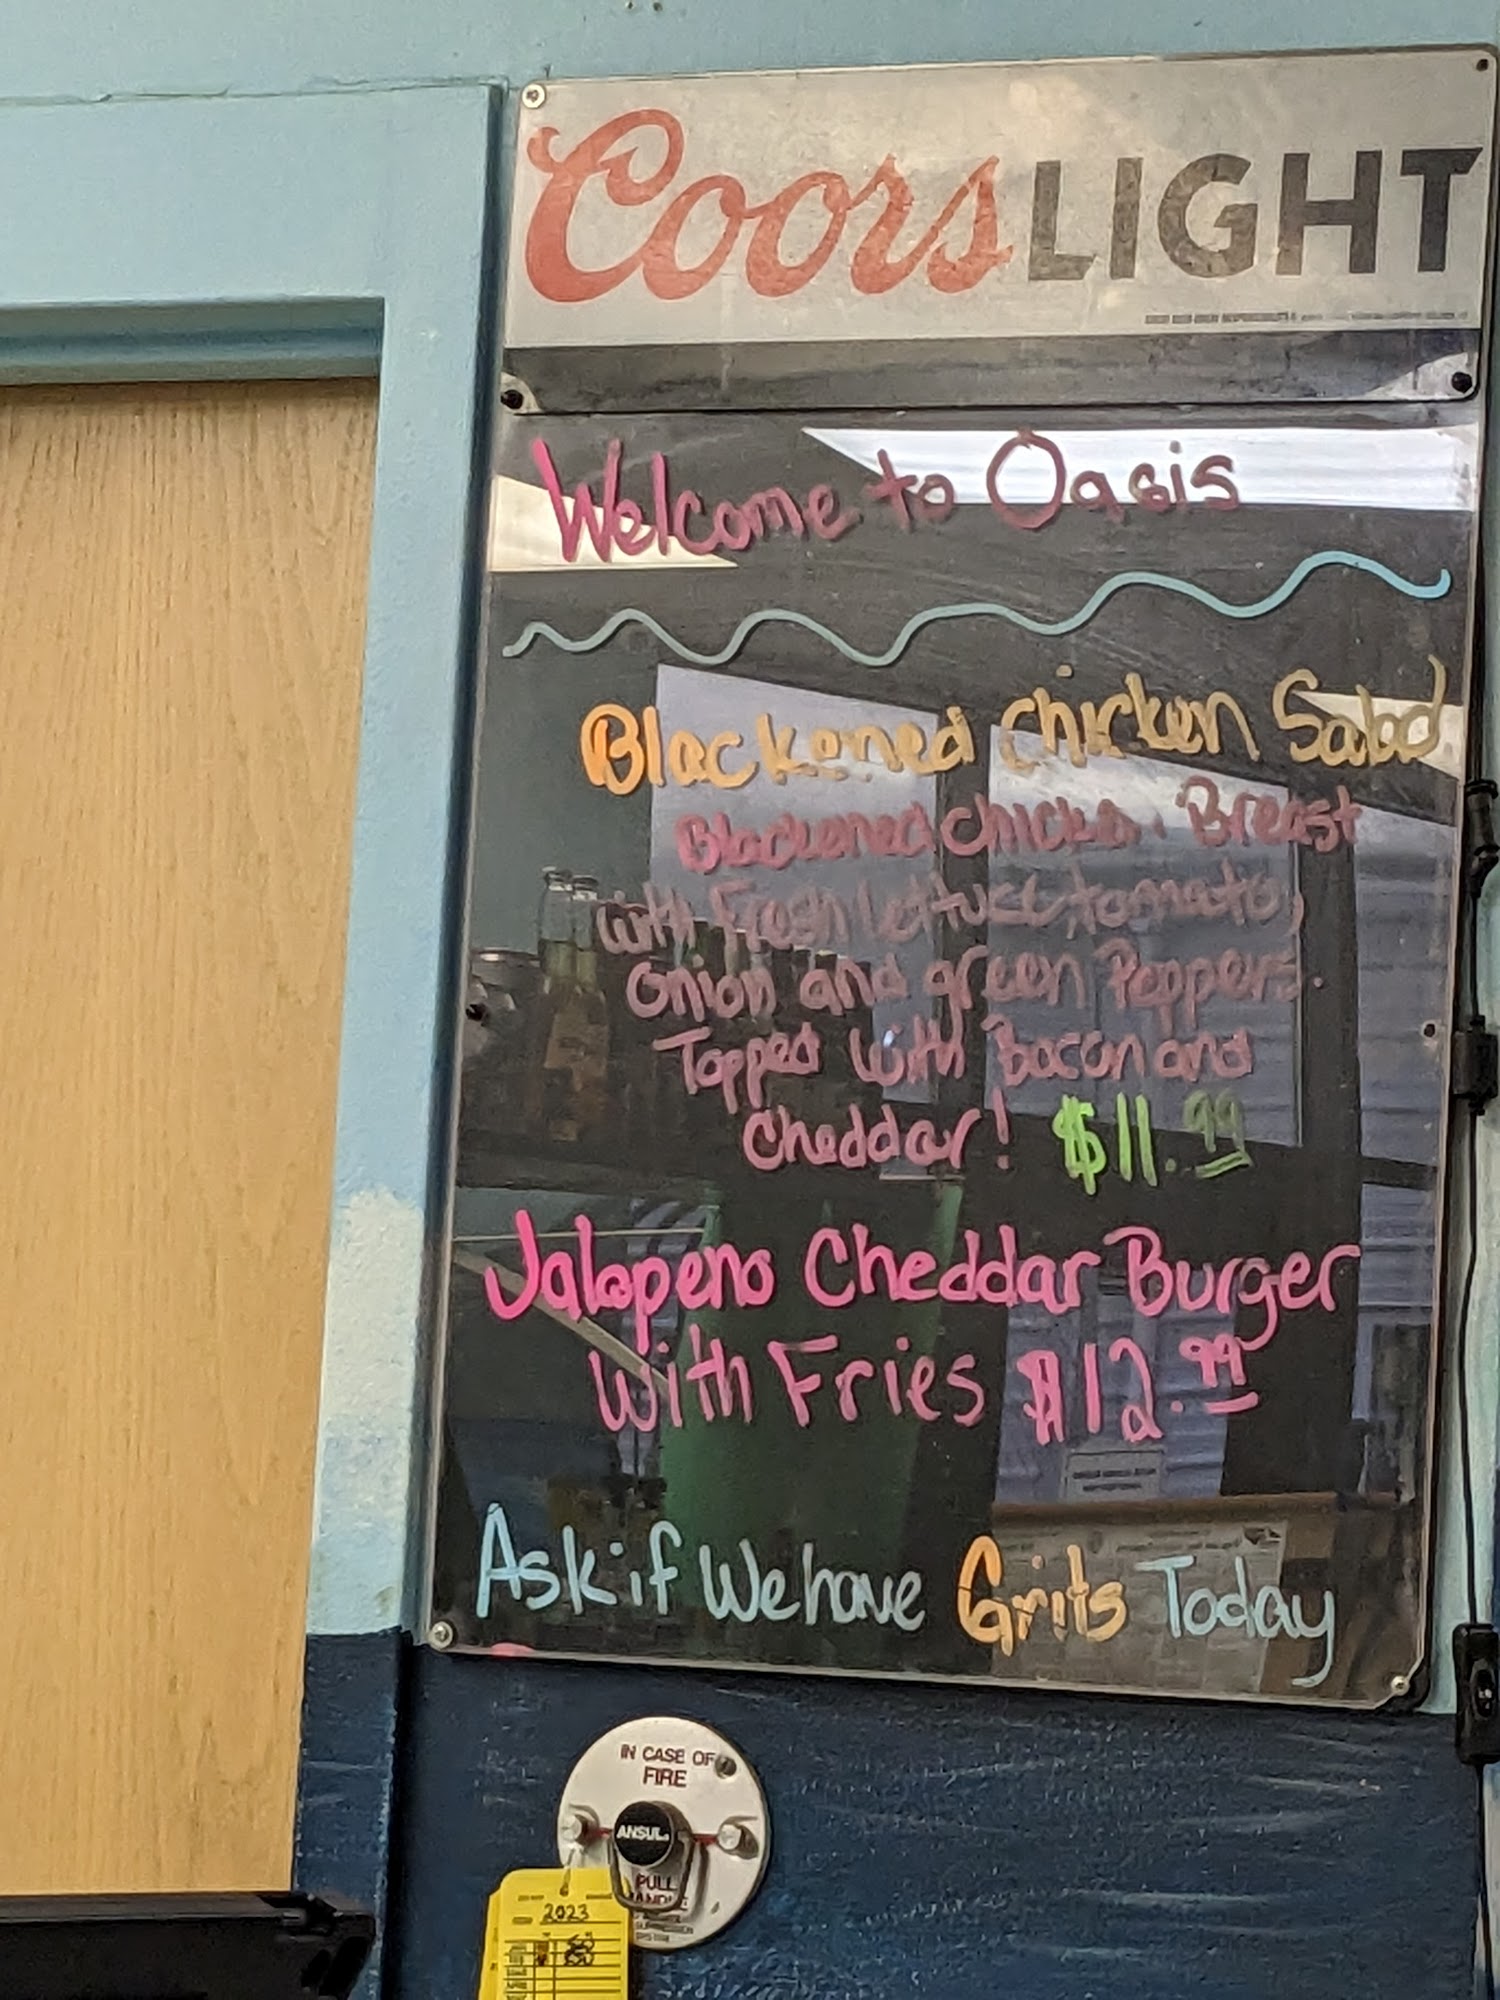 Coors LIGHT
Welcome to Oasis
Blackened Chicken Salad
Blackened chicken Breast
with Fresh lettuce, tomato,
onion and green Peppers.
Topped with Bacon and
cheddar! $11.99
Jalapeno Cheddar Burger
With Fries $12.99
Ask if We have Grits Today
IN CASE OF
FIRE
ANSUL
PULL
HANDLE
2023